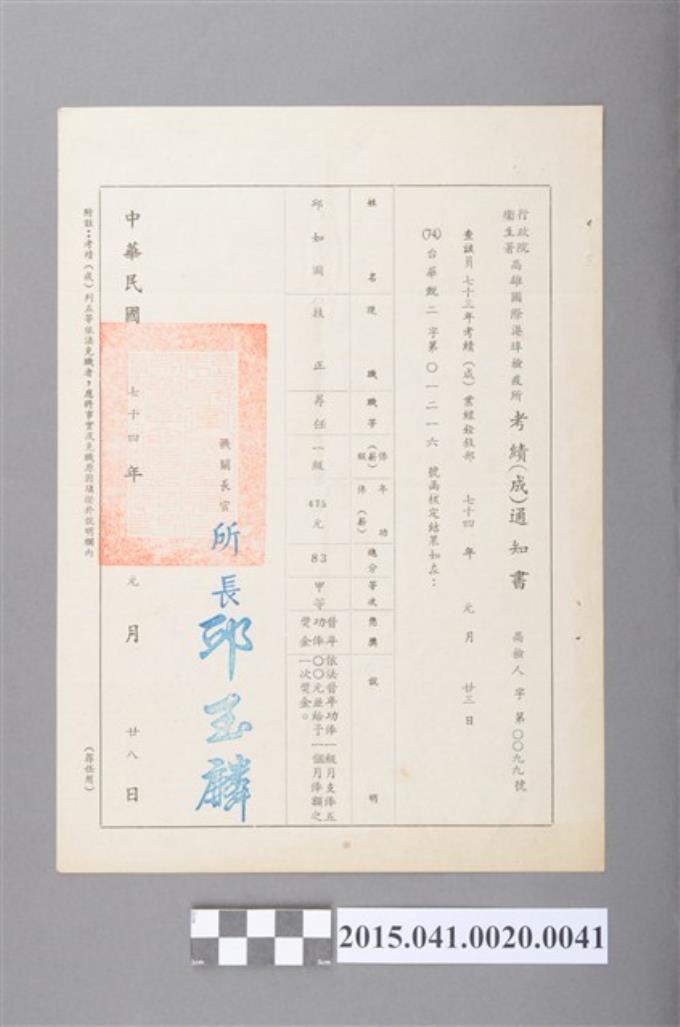 行政院
衛生署
高雄國際港埠檢疫所 考績(成)通知書 高檢人字第〇〇九九號
查該員七十三年考績(成)業經銓敘部 七十四年 元月 廿三日
(74)台華甄二字第〇一二一六 號函核定結果如左:
姓名 現職 職等 俸(薪)級 年功俸(薪) 總分 等次 應獎 說明
邱如國 技正 荐任 一級 475元 83 甲等
晉年功俸獎金
依法晉年功俸一級月支俸五〇〇元並給予一個月俸額之一次獎金。
機關長官 所長 邱玉麟
中華民國 七十四年 元月 廿八日
附註:考績(成)列五等依法免職者,應將事實及免職原因填註於說明欄內 (荐任用)
2015.041.0020.0041